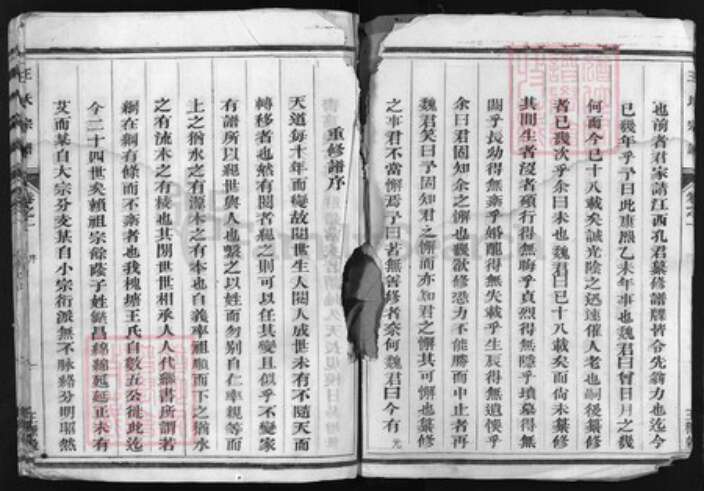 也前者君家請江西孔君纂修譜牒皆令先翁力也迄今
已幾年乎予曰此康熙乙未年事也魏君曰曾日月之幾
何而今已十八載矣誠光陰之迅速催人老也嗣後纂修
者已幾次乎余曰未也魏君曰已十八載矣而尚未纂修
其間生者沒者碩行得無晦乎貞烈得無隱乎墳墓得無
湮乎長幼得無紊乎婚配得無失載乎生辰得無遺悞乎
余曰君固知余之懈也幾欲修恐力不能勝而中止者再
魏君笑曰予固知君之懈而亦知君之懈其可懈也纂修
之事君不當懈焉予曰若無善修者奈何魏君曰今有
重修譜序
天道每十年而變故閱世生人閱人成世未有不隨天而
轉移者也然有閱者親之則可以任其變且似乎不變家
有譜所以繩世與人也繫之以姓而勿別自仁率親等而
上之猶水之有源木之有本也自義率祖順而下之猶水
之有流木之有枝也其閱世世相承人人代續書所謂若
綱在綱有條而不紊者也我槐塘王氏自數五公徙此迄
今二十四世矣賴祖宗餘蔭子姓繁昌綿綿延延正未有
艾而某自大宗分支某自小宗衍派無不脉絡分明昭然
王氏宗譜
卷之一